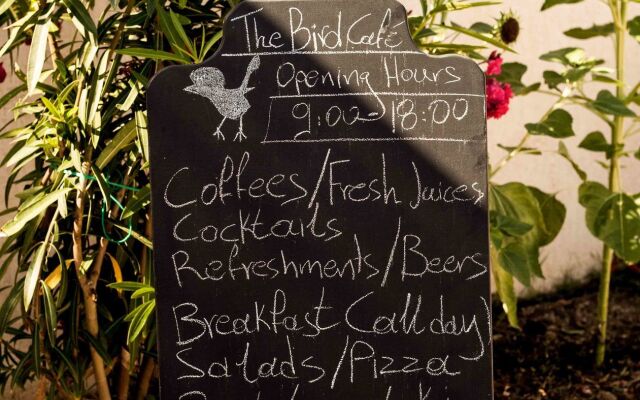 The Bird Café
Opening Hours
9:00-18:00
Coffees/Fresh Juices
Cocktails
Refreshments/Beers
Breakfast (all day)
Salads/Pizza